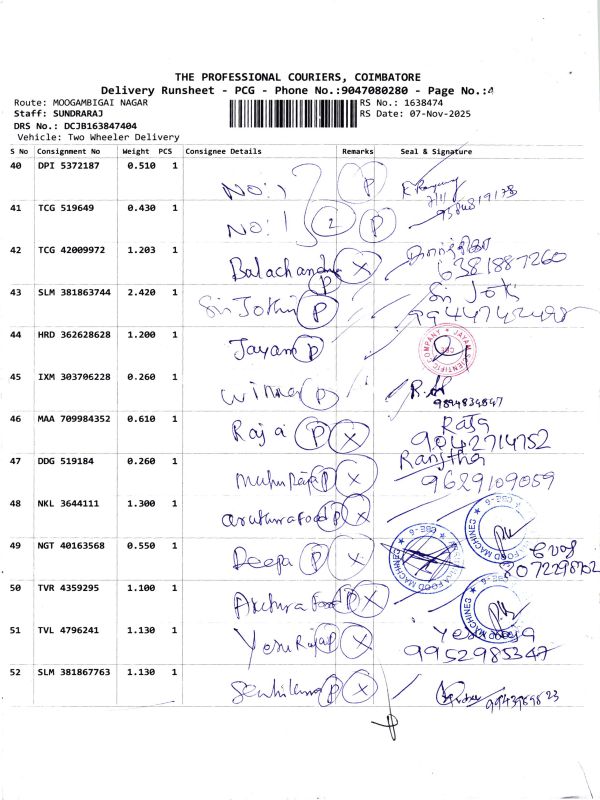 THE PROFESSIONAL COURIERS, COIMBATORE
Delivery Runsheet - PCG - Phone No.:9047080280 - Page No.:4
Route: MOOGAMBIGAI NAGAR
RS No.: 1638474
Staff: SUNDRARAJ
RS Date: 07-Nov-2025
DRS No.: DCJB163847404
Vehicle: Two Wheeler Delivery
S No Consignment No Weight PCS Consignee Details Remarks Seal & Signature
40 DPI 5372187 0.510 1 No: P
41 TCG 519649 0.430 1 No: 1 2 P
42 TCG 42009972 1.203 1 P X 6381887260
43 SLM 381863744 2.420 1 Sri Jothi P Sri Joti
44 HRD 362628628 1.200 1 Jayam P JAYAM SCIENTIFIC COMPANY CBE
45 IXM 303706228 0.260 1 Winner P 9894834847
46 MAA 709984352 0.610 1 Raja P X Raja 9042714752
47 DDG 519184 0.260 1 P X 9629109059
48 NKL 3644111 1.300 1 P X FOOD MACHINES CBE-6
49 NGT 40163568 0.550 1 Deepa P X FOOD MACHINES CBE-6
50 TVR 4359295 1.100 1 P X FOOD MACHINES CBE-6
51 TVL 4796241 1.130 1 Yesu Raja P X 9952985347
52 SLM 381867763 1.130 1 P X